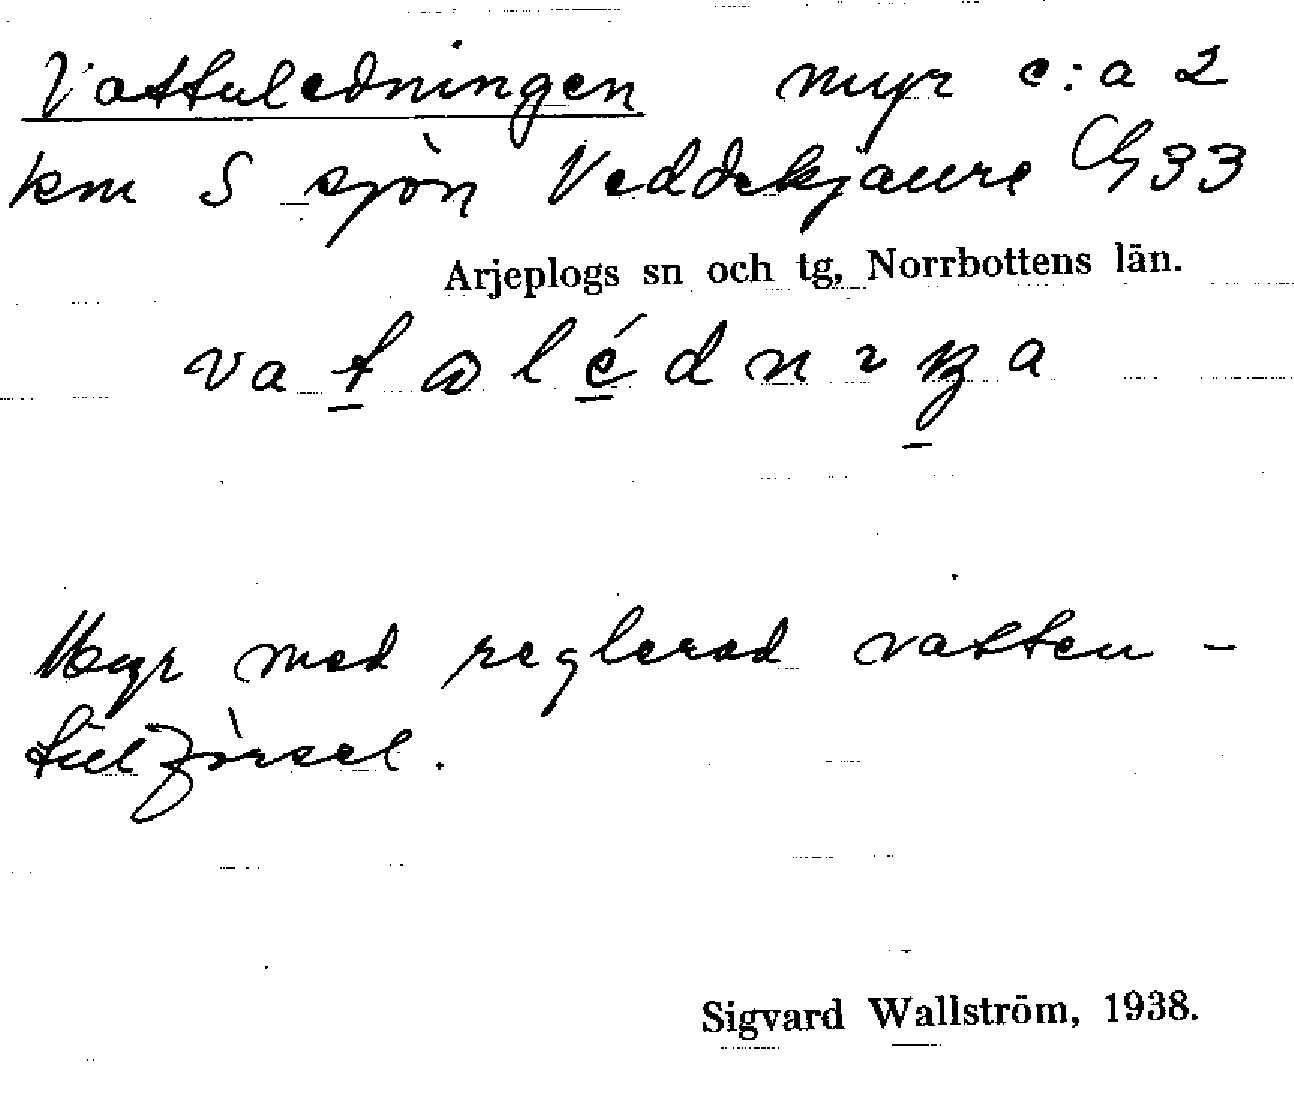 Vattuledningen myr c:a 2
km S sjön Veddekjaure G33
Arjeplogs sn och tg, Norrbottens län.
Myr med reglerad vatten-
tillförsel.
Sigvard Wallström, 1938.